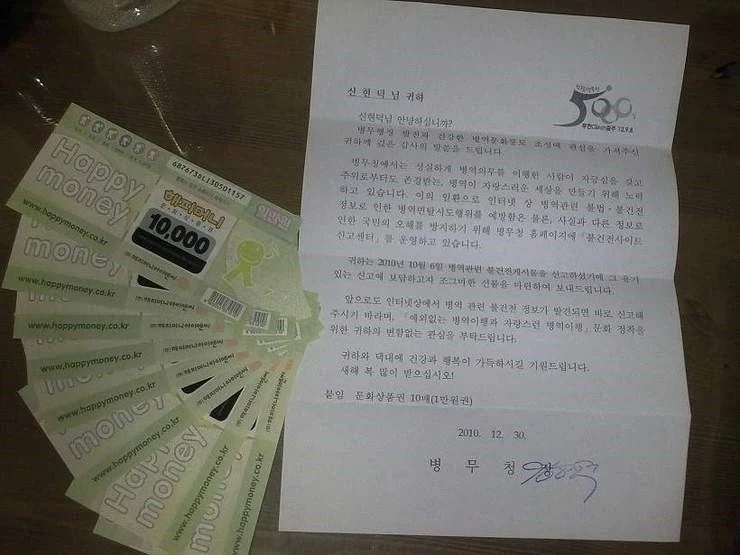 Happy money
www.happymoney.co.kr
6876736L130501157
해피머니
일만원
10,000
money
www.happymoney.co.kr
www.happymoney.co.kr
www.happymoney.co.kr
www.happymoney.co.kr
money
www.happymoney.co.kr
Happy money
www.happymoney.co.kr
www.happymoney.co.kr
신현덕님 귀하
500
무결점Clean병무 12.9.8
신현덕님 안녕하십니까?
병무행정 발전과 건강한 병역문화풍토 조성에 관심을 가져주신
귀하께 깊은 감사의 말씀을 드립니다.
병무청에서는 성실하게 병역의무를 이행한 사람이 자긍심을 갖고
주위로부터도 존경받는, 병역이 자랑스러운 세상을 만들기 위해 노력
하고 있습니다. 이의 일환으로 인터넷 상 병역관련 불법·불건전
정보로 인한 병역면탈시도행위를 예방함은 물론, 사실과 다른 정보로
인한 국민의 오해를 방지하기 위해 병무청 홈페이지에「불건전사이트
신고센터」를 운영하고 있습니다.
귀하는 2010년 10월 6일 병역관련 불건전게시물을 신고하셨기에 그 용기
있는 신고에 보답하고자 조그마한 선물을 마련하여 보내드립니다.
앞으로도 인터넷상에서 병역 관련 불건전 정보가 발견되면 바로 신고해
주시기 바라며,「예외없는 병역이행과 자랑스런 병역이행」문화 정착을
위한 귀하의 변함없는 관심을 부탁드립니다.
귀하와 댁내에 건강과 행복이 가득하시길 기원드립니다.
새해 복 많이 받으십시오!
붙임 문화상품권 10매(1만원권)
2010. 12. 30.
병 무 청 장